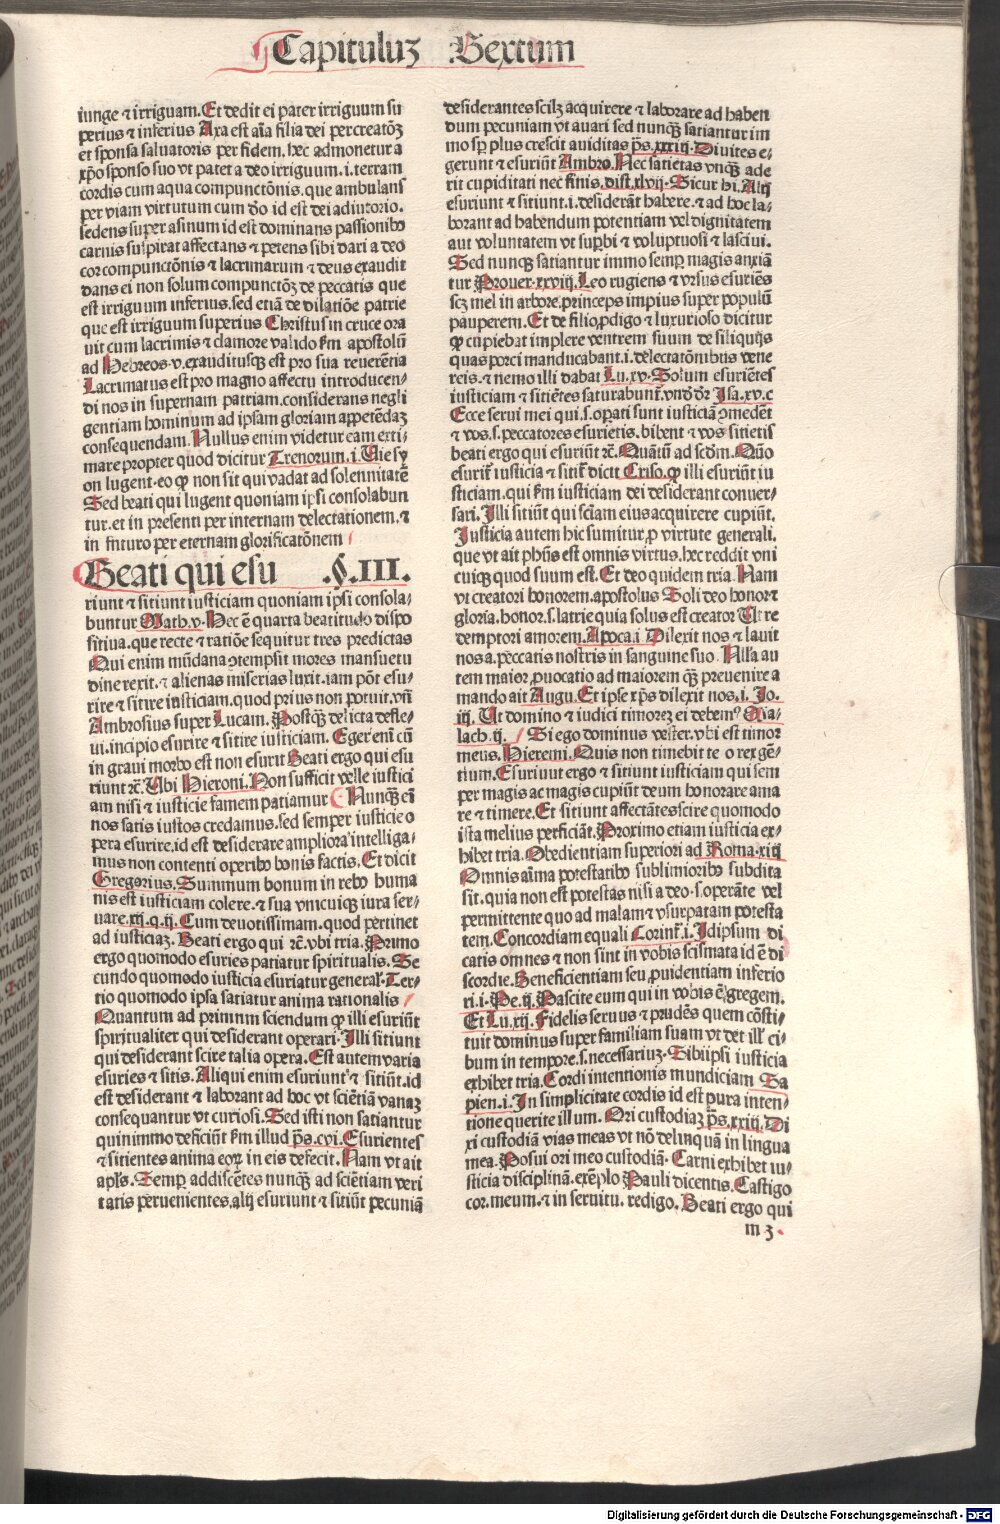 Capituluʒ Sextum
iunge ⁊ irriguam. Et dedit ei pater irriguum su
perius ⁊ inferius Axa est aīa filia dei per creatōʒ
et sponsa saluatoris per fidem. hec admonetur a
xp̄o sponso suo vt pater a deo irriguum .i. terram
cordis cum aqua compunctōnis. que ambulans
per viam virtutum cum dō id est dei adiutorio.
sedens super asinum id est dominans passionibꝰ
carnis suspirat affectans ⁊ petens sibi dari a deo
cor compunctōnis ⁊ lacrimarum ⁊ deus exaudit
dans ei non solum compunctōʒ de peccatis que
est irriguum inferius. sed etiā de dilatiōe patrie
que est irriguum superius Christus in cruce ora
uit cum lacrimis ⁊ clamore valido ẜm apostolū
ad Hebreos .v. exauditusqʒ est pro sua reuerētia
Lacrimatus est pro magno affectu introducen⸗
di nos in supernam patriam. considerans negli
gentiam hominum ad ipsam gloriam appetēdaʒ
consequendam. Nullus enim videtur eam exti⸗
mare propter quod dicitur Trenorum .i. Uie sy
on lugent. eo ꝙ non sit qui vadat ad solennitatē
Sed beati qui lugent quoniam ipsi consolabun
tur. et in presenti per internam delectationem. ⁊
in fnturo per eternam glorificatōnem
Beati qui esu .§. III.
riunt ⁊ sitiunt iusticiam quoniam ipsi consola⸗
buntur Math. v. Hec ē quarta beatitudo dispo
sitiua. que recte ⁊ ratiōe sequitur tres predictas
Qui enim mūdana ꝯtempsit mores mansuetu
dine rexit. ⁊ alienas miserias luxit. iam pōt esu⸗
rire ⁊ sitire iusticiam. quod prius non potuit. vn̄
Ambrosius super Lucam. Postqʒ̄ delicta defle⸗
ui. incipio esurire ⁊ sitire iusticiam. Eger eni cū
in graui morbo est non esurit Beati ergo qui esu
riunt ⁊c̄. Ubi Hieroni. Non sufficit velle iustici
am nisi ⁊ iusticie famem patiamur Nunqʒ̄ ei
nos satis iustos credamus. sed semper iusticie o
pera esurire. id est desiderare ampliora intelliga⸗
mus non contenti operibꝰ bonis factis. Et dicit
Gregorius. Summum bonum in rebꝰ huma
nis est iusticiam colere. ⁊ sua vnicuiqʒ iura ser⸗
uare. xij. q. ij. Cum deuotissimam. quod pertinet
ad iusticiaʒ. Beati ergo qui ⁊c̄. vbi tria. Primo
ergo quomodo esuries patiatur spiritualis. Se
cundo quomodo iusticia esuriatur general̄. Ter⸗
tio quomodo ipsa satiatur anima rationalis
Quantum ad primnm sciendum ꝙ illi esuriūt
spiritualiter qui desiderant operari. Illi sitiunt
qui desiderant scire talia opera. Est autem varia
esuries ⁊ sitis. Aliqui enim esuriunt ⁊ sitiūt. id
est desiderant ⁊ laborant ad hoc vt sciētiā vanaʒ
consequantur vt curiosi. Sed isti non satiantur
quinimmo deficiūt ẜm illud p̄s. cvi. Esurientes
⁊ sitientes anima eoꝝ in eis defecit. Nam vt ait
apl̄s. Semꝑ addiscētes nunqʒ̄ ad sciētiam veri
tatis peruenientes. alij esuriunt ⁊ sitiūt pecuniā
desiderantes scilʒ acquirere ⁊ laborare ad haben
dum pecuniam vt auari sed nunqʒ̄ satiantur im
mo sꝑ plus crescit auiditas p̄s. xxxiij. Diuites e⸗
gerunt ⁊ esuriūt Ambro. Nec satietas vnqʒ̄ ade
rit cupiditati nec finis. dist. xlvij. Sicut hi. Alij
esuriunt ⁊ sitiunt .i. desiderāt habere. ⁊ ad hoc la⸗
borant ad habendum potentiam vel dignitatem
aut voluntatem vt suꝑbi ⁊ voluptuosi ⁊ lasciui.
Sed nunqʒ satiantur immo semꝑ magis anxiā
tur Prouer. xxviij. Leo rugiens ⁊ vrsus esuriēs
scʒ mel in arbore. princeps impius super populū
pauperem. Et de filio ꝓdigo ⁊ luxurioso dicitur
ꝙ cūpiebat implere ventrem suum de siliquijs
quas porci manducabant .i. delectatōnibus vene
reis. ⁊ nemo illi dabat Lu. xv. Solum esuriētes
iusticiam ⁊ sitiētes saturabunt̄. vnd̄ dr̄ Isa. xv. c
Ecce serui mei qui .s. oꝑati sunt iusticiā ꝯmedēt
⁊ vos .s. peccatores esurietis. bibent ⁊ vos sitietis
beati ergo qui esuriūt ⁊c̄. Quātū ad scd̄m. Quō
esurit̄ iusticia ⁊ sitit̄ dicit Criso. ꝙ illi esuriūt iu
sticiam. qui ẜm iusticiam dei desiderant conuer⸗
sari. Illi sitiūt qui sc̄iam eius acquirere cupiūt.
Iusticia autem hic sumitur ꝓ virtute generali.
que vt ait ph̄us est omnis virtus. hec reddit vni
cuiqʒ quod suum est. Et deo quidem tria. Nam
vt creatori honorem. apostolus Soli deo honor ⁊
gloria. honor .s. latrie quia solus est creator Ut re
demptori amorem. Apoca. i Dilexit nos ⁊ lauit
nos a. peccatis nostris in sanguine suo Nl̄la au
tem maior ꝓuocatio ad maiorem qʒ̄ preuenire a
mando ait Augu. Et ipse xp̄s dilexit nos. i. Jo.
iij. Ut domino ⁊ iudici timoreʒ ei debemꝰ Ma⸗
lach. ij. Si ego dominus vester. vbi est timor
meus. Hieremi. Quis non timebit te o rex gē⸗
tium. Esuriunt ergo ⁊ sitiunt iusticiam qui sem
per magis ac magis cupiūt deum honorare ama
re ⁊ timere. Et sitiunt affectātes scire quomodo
ista melius perficiāt. Proximo etiam iusticia ex⸗
hibet tria. Obedientiam superiori ad Roma. xiij
Omnis aīma potestatibꝰ sublimioribꝰ subdita
sit. quia non est potestas nisi a deo .s. operāte vel
permittente quo ad malam ⁊ vsurpatam potesta
tem. Concordiam equali Corint̄. i. Idipsum di
catis omnes ⁊ non sint in vobis scismata id ē di
scordie. Beneficientiam seu ꝓuidentiam inferio
ri. i. Pe. ij. Pascite eum qui in vobis ē gregem.
Et Lu. xij. Fidelis seruus ⁊ prudēs quem cōsti⸗
tuit dominus super familiam suam vt det ill̄ ci⸗
bum in tempore .s. necessariuʒ. Sibiipsi iusticia
exhibet tria. Cordi intentionis mundiciam Sa
pien. i. In simplicitate cordis id est pura inten⸗
tione querite illum. Ori custodiaʒ p̄s. xxiij. Di
xi custodiā vias meas vt nō delinquā in lingua
mea. Posui ori meo custodiā. Carni exhibet iu⸗
sticia disciplinā. exēplo Pauli dicentis. Castigo
cor. meum. ⁊ in seruitu. redigo. Beati ergo qui
m 3
Digitalisierung gefördert durch die Deutsche Forschungsgemeinschaft - DFG